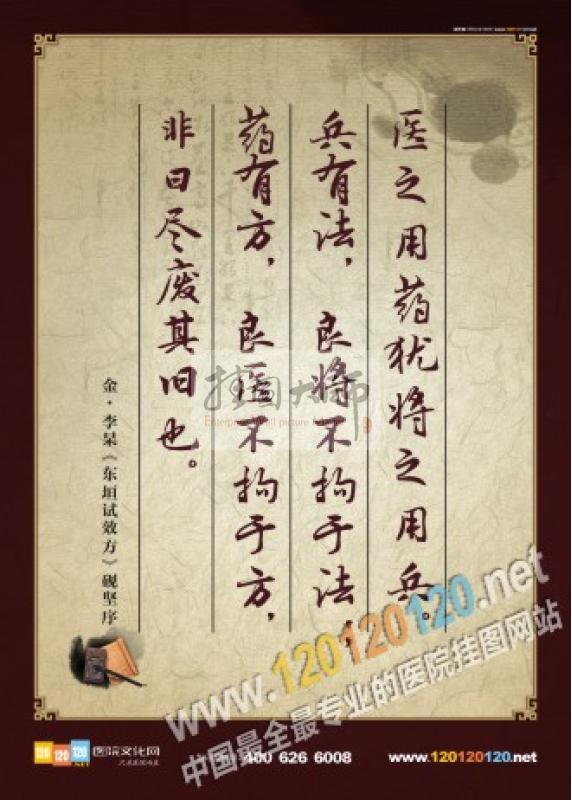 医之用药犹将之用兵。
兵有法，良将不拘于法，
药有方，良医不拘于方，
非曰尽废其旧也。
金·李杲《东垣试效方》砚坚序
挂图大师
www.120120120.net
中国最全最专业的医院挂图网站
120 120 120 .NET 医院文化网
400 626 6008
www.120120120.net